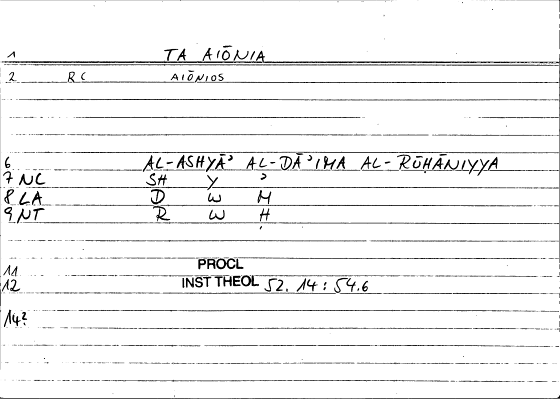 1 TA AIŌNIA
2 RC AIŌNIOS
6 AL-ASHYĀʾ AL-DĀʾIMA AL-RŪḤĀNIYYA
7 NC SH Y ʾ
8 LA D W M
9 NT R W Ḥ
11 PROCL
12 INST THEOL 52.14:54.6
14?